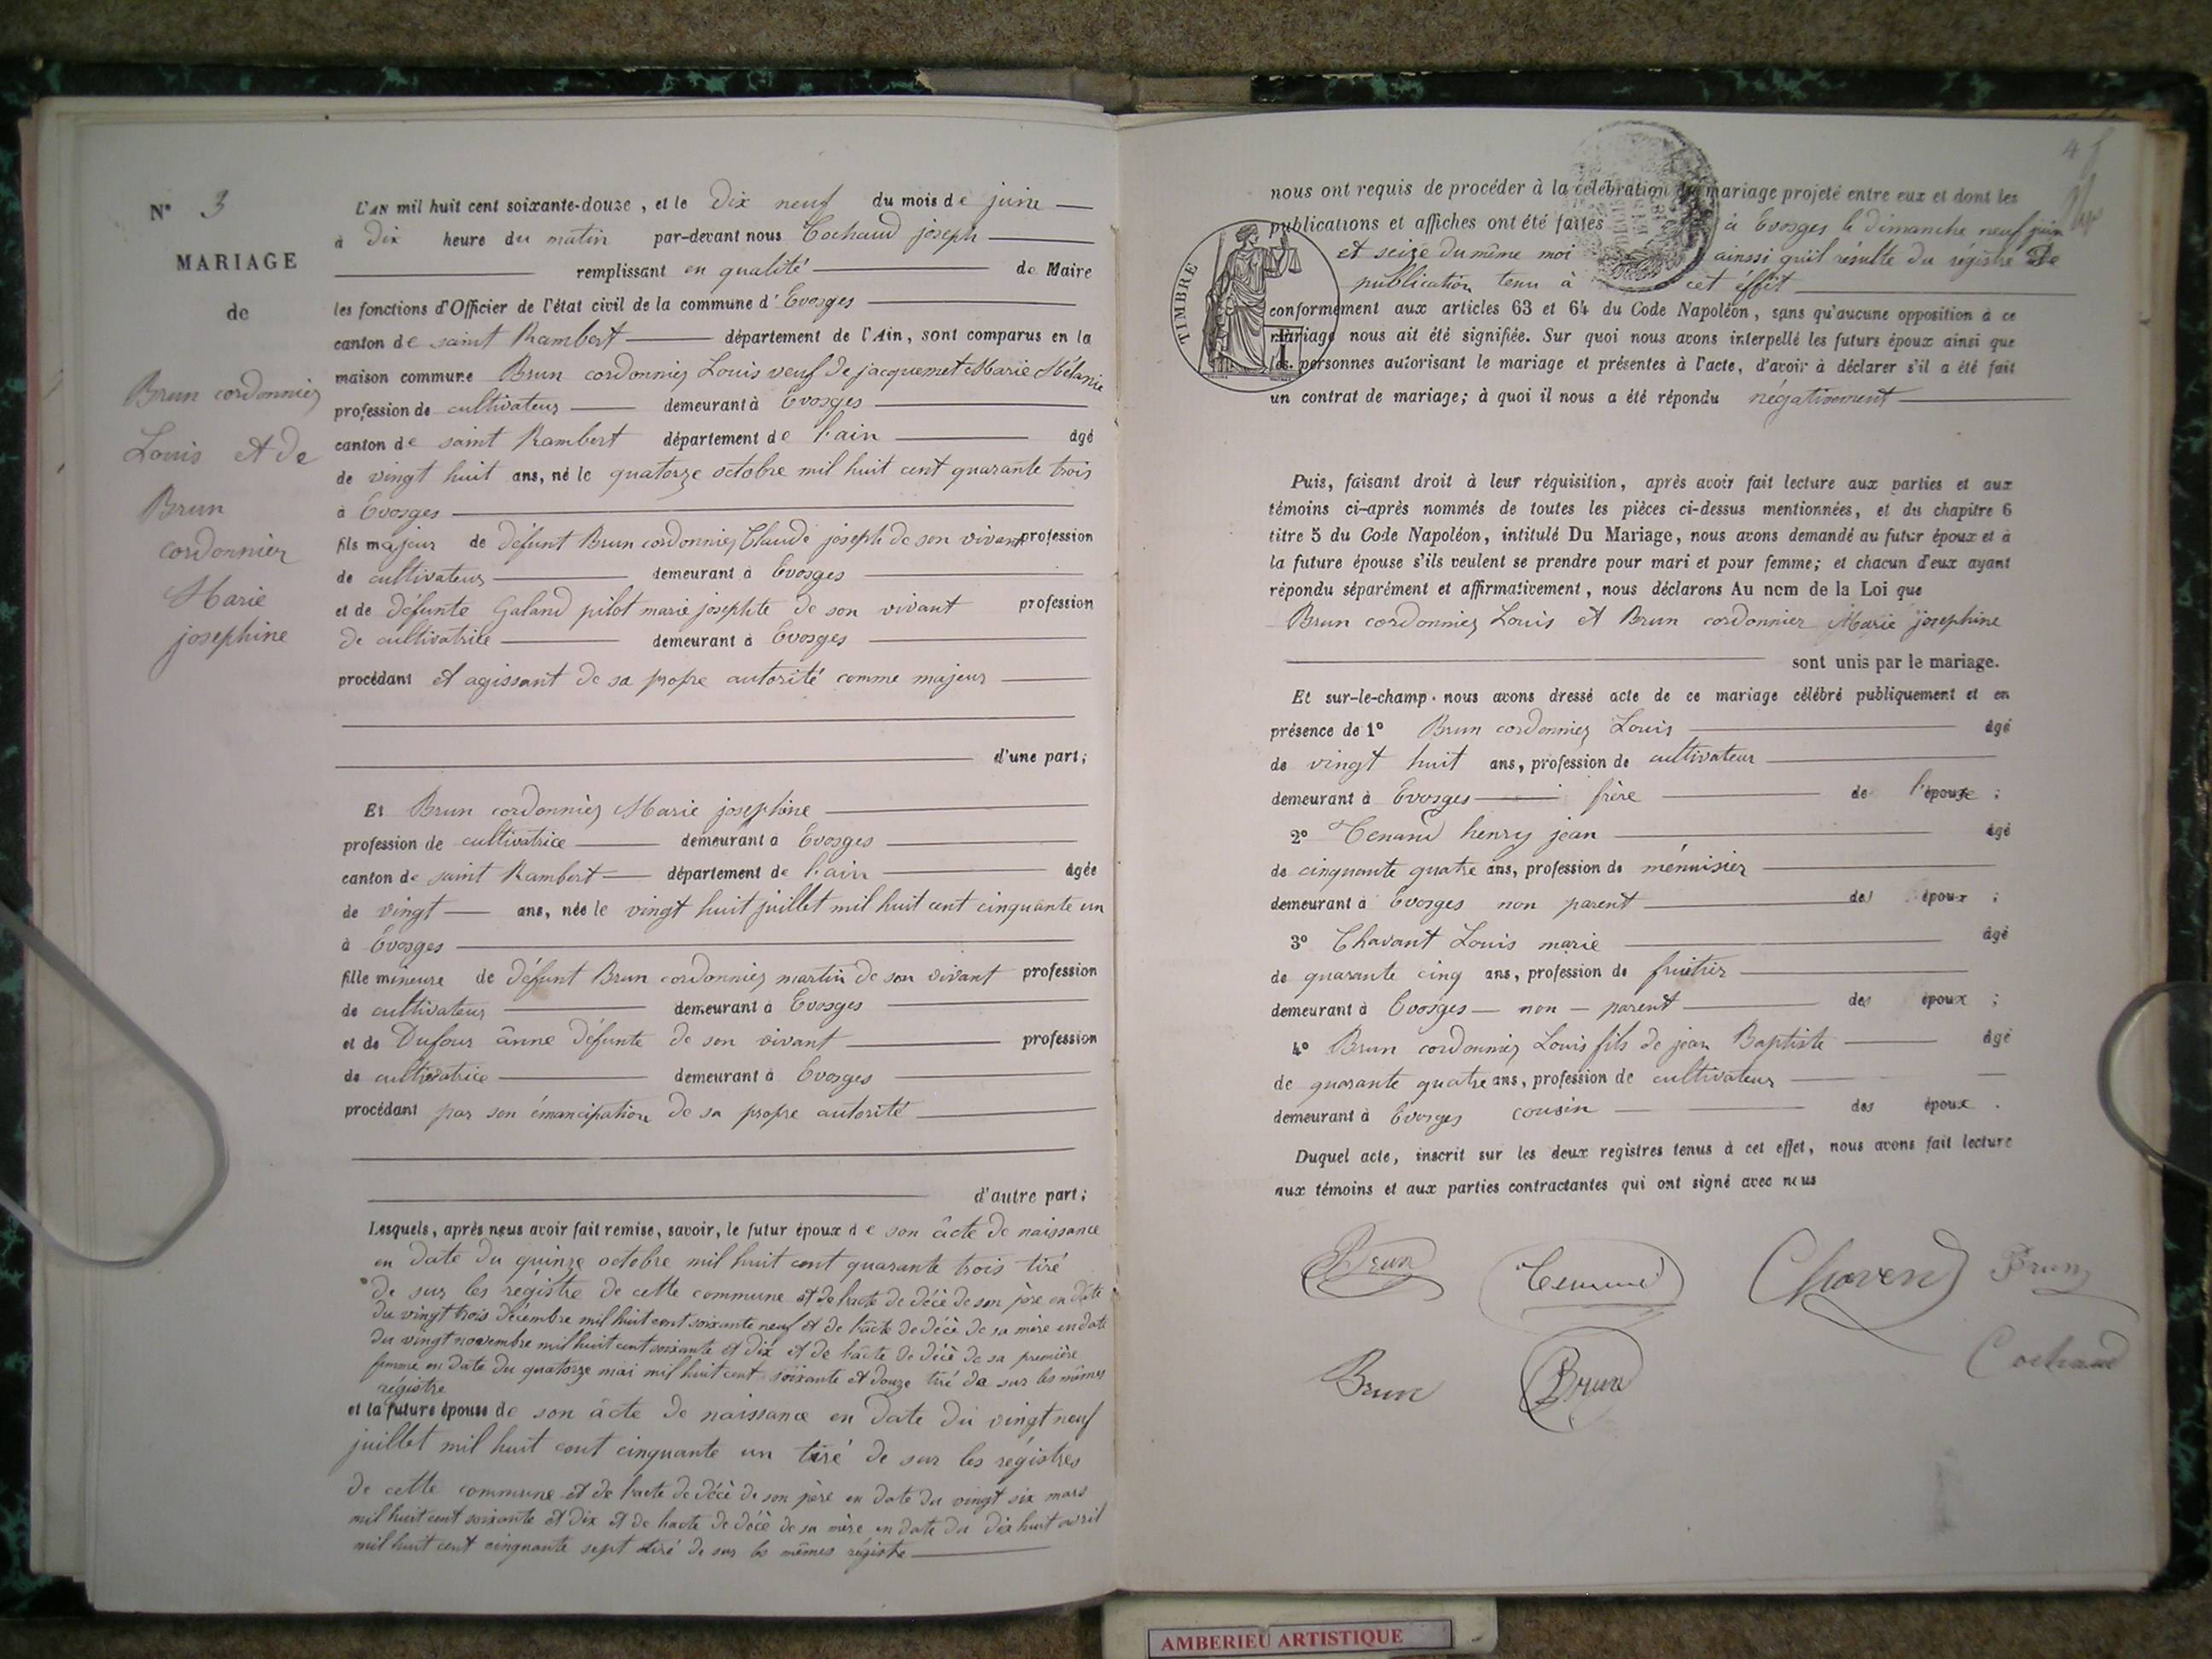 N° 3
MARIAGE
de
Brun cordonnier
Louis et de
Brun
cordonnier
Marie
josephine
L'AN mil huit cent soixante-douze, et le Dix neuf du mois de juin
à Dix heure du matin par-devant nous Cochaud joseph
remplissant en qualité de Maire
les fonctions d'Officier de l'état civil de la commune d'Evosges
canton de saint Rambert département de l'Ain, sont comparus en la
maison commune Brun cordonnier Louis veuf de jacquemet Marie Mélanie
profession de cultivateur demeurant à Evosges
canton de saint Rambert département de l'ain âgé
de vingt huit ans, né le quatorze octobre mil huit cent quarante trois
à Evosges
fils majeur de défunt Brun cordonnier Claude joseph de son vivant profession
de cultivateur demeurant à Evosges
et de défunte Galand pilot marie josephte de son vivant profession
de cultivatrice demeurant à Evosges
procédant et agissant de sa propre autorité comme majeur
d'une part;
Et Brun cordonnier Marie josephine
profession de cultivatrice demeurant à Evosges
canton de saint Rambert département de l'ain âgée
de vingt ans, née le vingt huit juillet mil huit cent cinquante un
à Evosges
fille mineure de défunt Brun cordonnier martin de son vivant profession
de cultivateur demeurant à Evosges
et de Dufour ânne défunte de son vivant profession
de cultivatrice demeurant à Evosges
procédant par son émancipation de sa propre autorité
d'autre part;
Lesquels, après nous avoir fait remise, savoir, le futur époux de son âcte de naissance
en date du quinze octobre mil huit cent quarante trois tiré
de sur les régistre de cette commune et de l'acte de décè de son père en date
du vingt trois décembre mil huit cent soixante neuf et de l'âcte de décè de sa mère en date
du vingt novembre mil huit cent soixante et dix et de l'âcte de décè de sa première
femme en date du quatorze mai mil huit cent soixante et douze tiré de sur les mêmes
régistre
et la future épouse de son âcte de naissance en date du vingt neuf
juillet mil huit cent cinquante un tiré de sur les régistres
de cette commune et de l'acte de décè de son père en date du vingt six mars
mil huit cent soixante et dix et de l'acte de décè de sa mère en date du dix huit avril
mil huit cent cinquante sept tiré de sur les mêmes régistre
nous ont requis de procéder à la célébration du mariage projeté entre eux et dont les
publications et affiches ont été faites à Evosges le dimanche neuf juin
et seize du même moi ainssi qu'il résulte du régistre de
publication tenu à cet éffet
TIMBRE
conformément aux articles 63 et 64 du Code Napoléon, sans qu'aucune opposition à ce
mariage nous ait été signifiée. Sur quoi nous avons interpellé les futurs époux ainsi que
les personnes autorisant le mariage et présentes à l'acte, d'avoir à déclarer s'il a été fait
un contrat de mariage; à quoi il nous a été répondu négativement
Puis, faisant droit à leur réquisition, après avoir fait lecture aux parties et aux
témoins ci-après nommés de toutes les pièces ci-dessus mentionnées, et du chapitre 6
titre 5 du Code Napoléon, intitulé Du Mariage, nous avons demandé au futur époux et à
la future épouse s'ils veulent se prendre pour mari et pour femme; et chacun d'eux ayant
répondu séparément et affirmativement, nous déclarons Au nom de la Loi que
Brun cordonnier Louis et Brun cordonnier Marie josephine
sont unis par le mariage.
Et sur-le-champ nous avons dressé acte de ce mariage célébré publiquement et en
présence de 1° Brun cordonnier Louis âgé
de vingt huit ans, profession de cultivateur
demeurant à Evosges frère de l'épouse;
2° Tenand henry jean âgé
de cinquante quatre ans, profession de ménuisier
demeurant à Evosges non parent des époux;
3° Chavant Louis marie âgé
de quarante cinq ans, profession de fruitier
demeurant à Evosges non parent des époux;
4° Brun cordonnier Louis fils de jean Baptiste âgé
de quarante quatre ans, profession de cultivateur
demeurant à Evosges cousin des époux.
Duquel acte, inscrit sur les deux registres tenus à cet effet, nous avons fait lecture
aux témoins et aux parties contractantes qui ont signé avec nous
Brun Tenand Chaven Brun
Cochaud
Brun Brun
AMBERIEU ARTISTIQUE